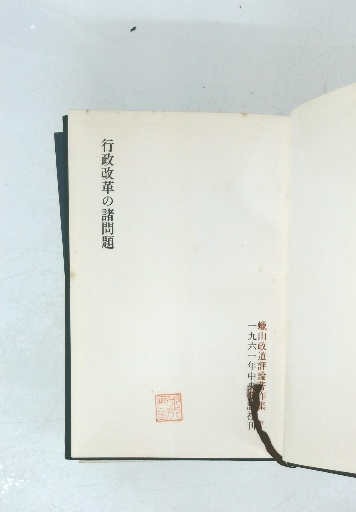 行政改革の諸問題
蠟山政道評論著作集
一九六一年中央公論社刊